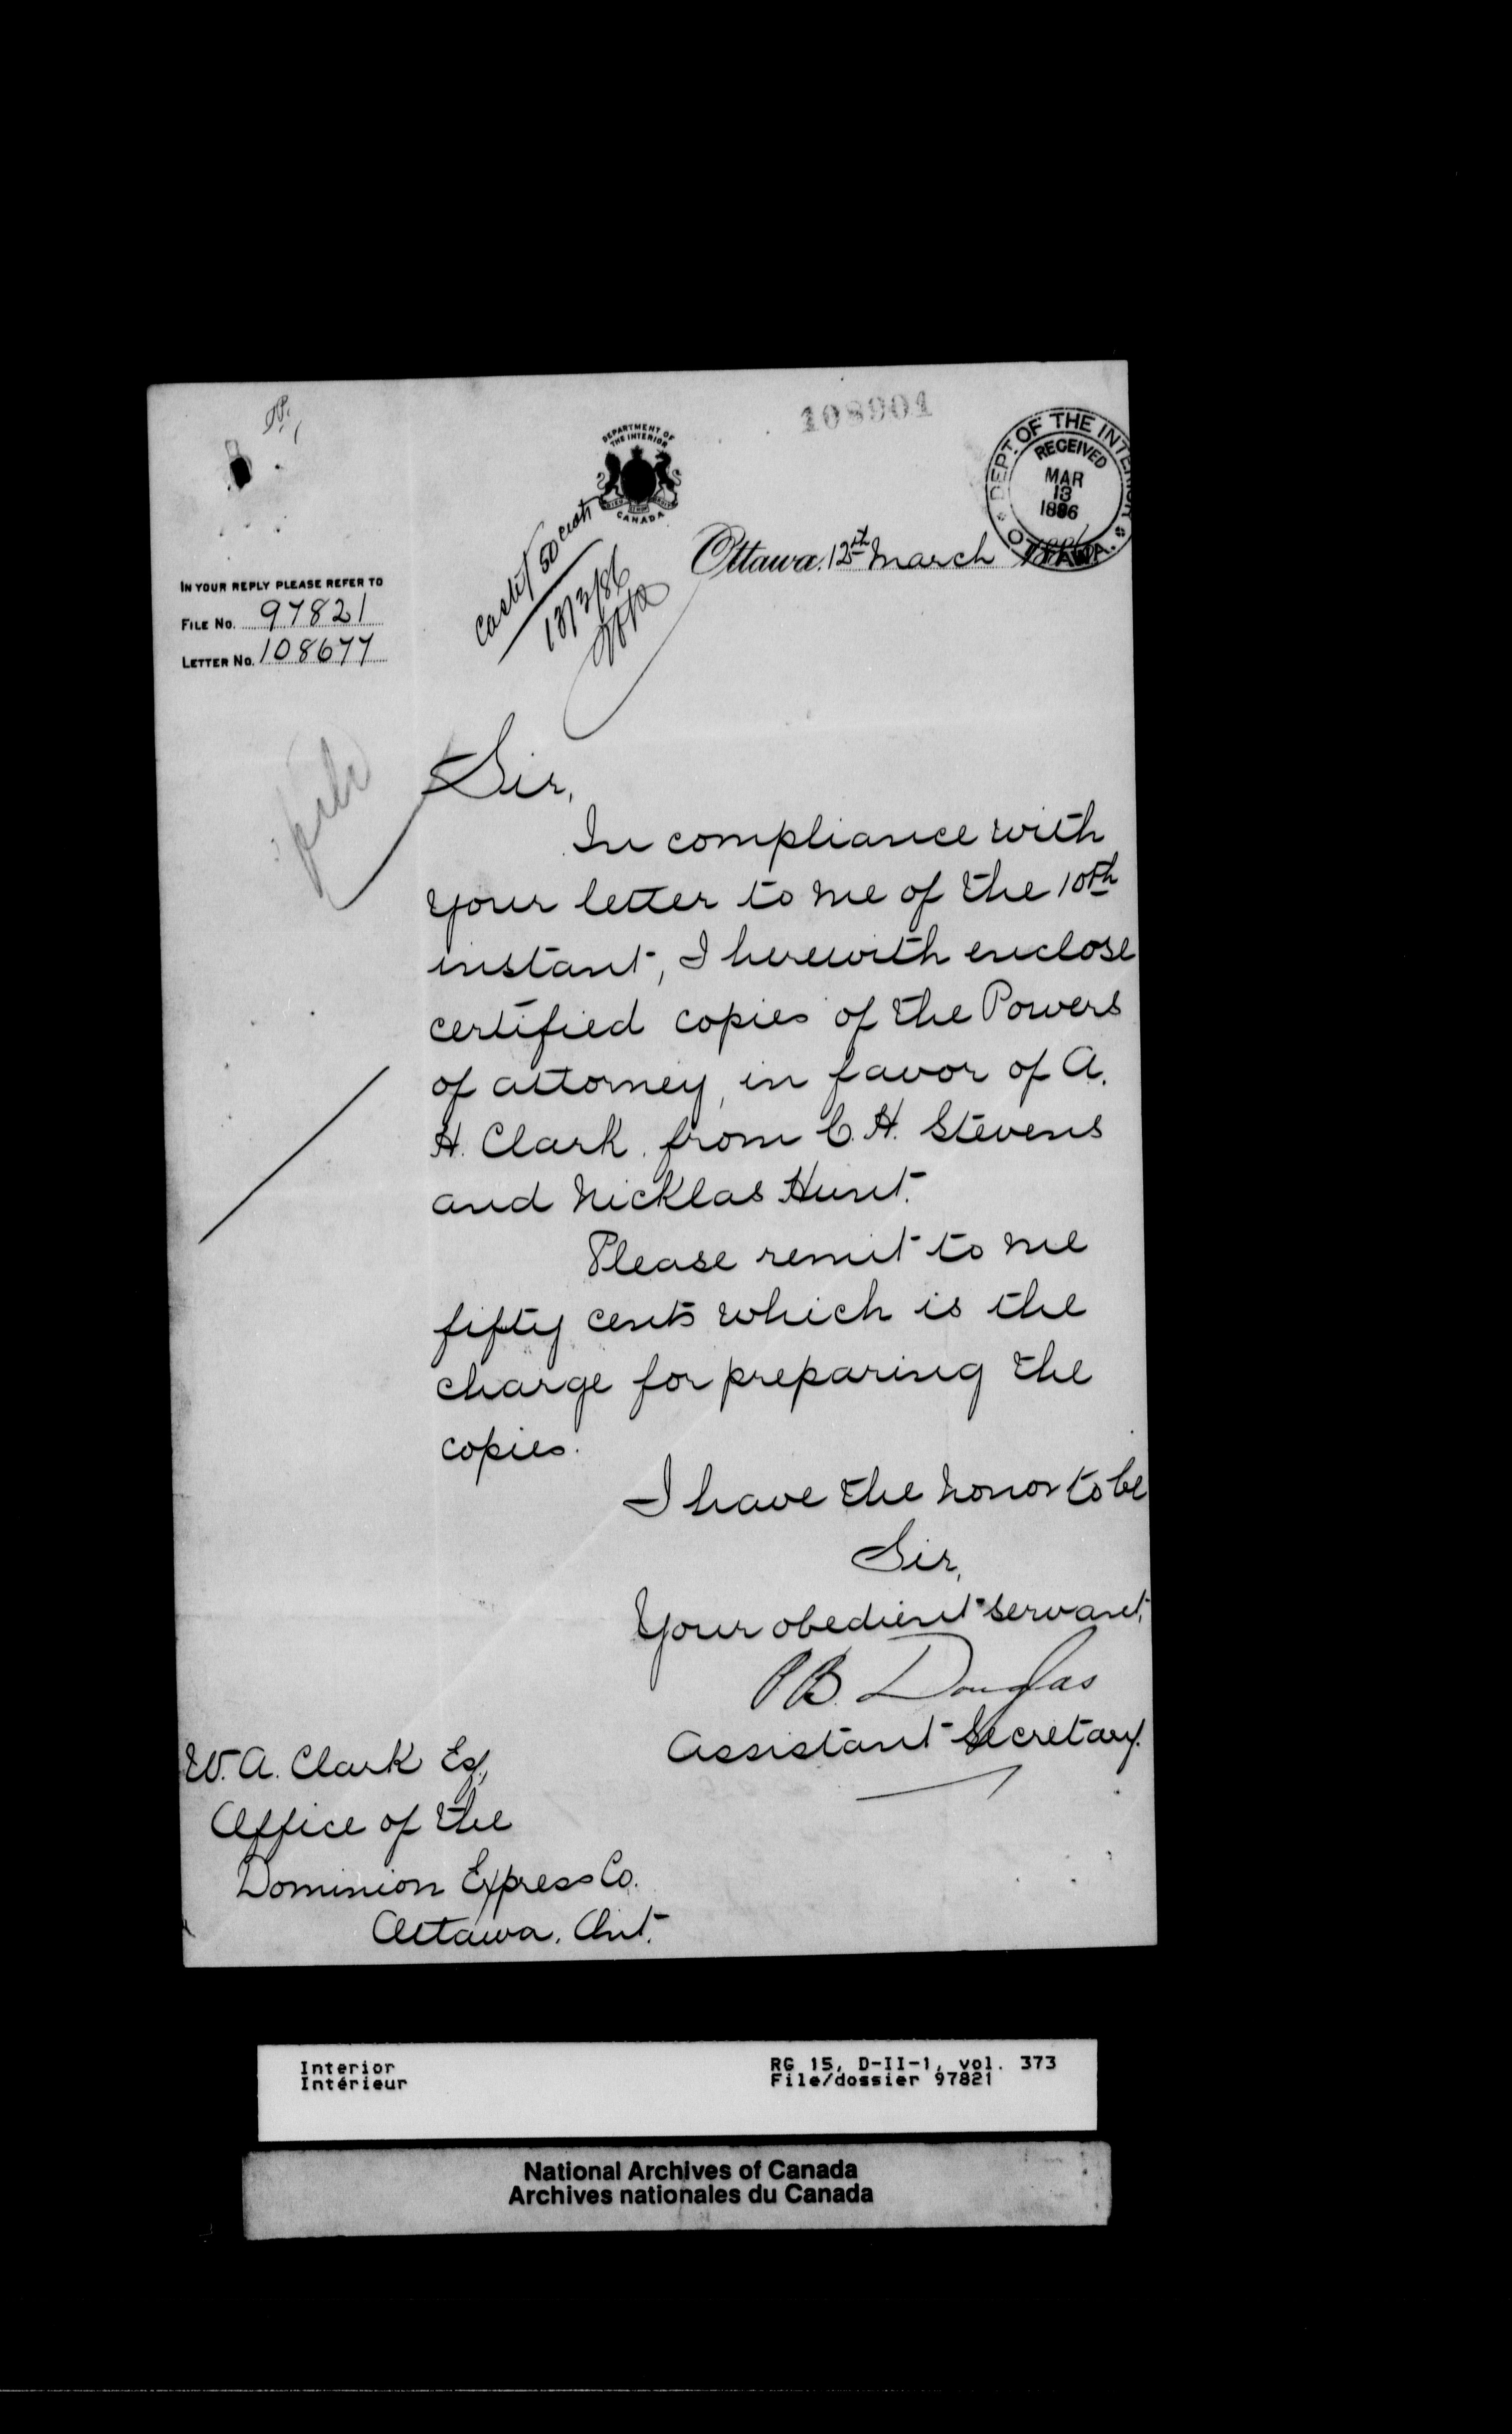 108901
DEPARTMENT OF
THE INTERIOR
CANADA
DEPT. OF THE INTERIOR
RECEIVED
MAR
13
1886
OTTAWA.
Ottawa. 12th March 1886
IN YOUR REPLY PLEASE REFER TO
FILE No. 97821
LETTER No. 108677
50 cents
13/3/86
file
Sir,
In compliance with
your letter to me of the 10th
instant, I herewith enclose
certified copies of the Powers
of attorney, in favor of A.
H. Clark, from C. H. Stevens
and Nicklas Hunt.
Please remit to me
fifty cents which is the
charge for preparing the
copies.
I have the honor to be
Sir,
Your obedient servant,
P. B. Douglas
Assistant Secretary.
W. A. Clark Esq,
Office of the
Dominion Express Co.
Ottawa, Ont.
Interior
Intérieur
RG 15, D-II-1, vol. 373
File/dossier 97821
National Archives of Canada
Archives nationales du Canada